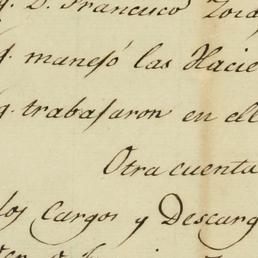 D. Francisco
q. manejó las Hacie
q. trabajaron en ell
Otra cuenta
los Cargos y Descarg